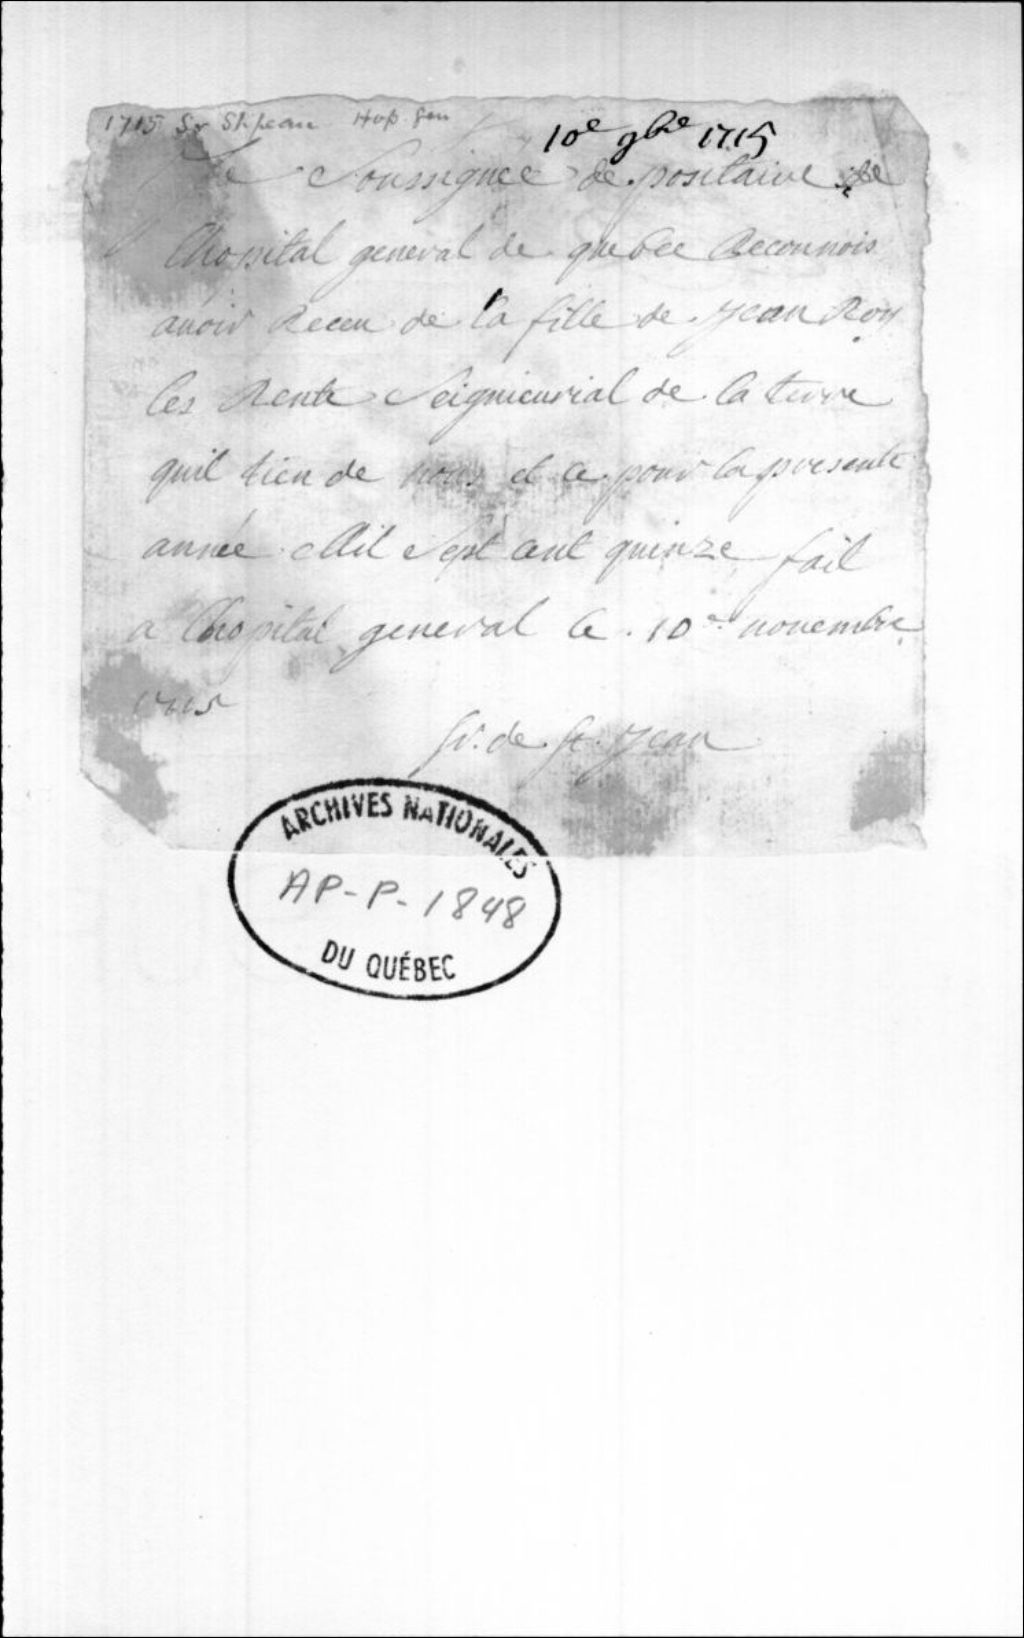 1715 Sr St. Jean Hop. Gen
10e 9bre 1715
Je Soussignee de positaire de
lhospital general de quebec Reconnois
auoir Receu de la fille de jean Roy
les Rente Seigneurial de la terre
quil tien de nous et ce pour la presente
année Mil Sept cent quinze fait
a lhopital general le 10e nouembre
1715
Sr. de St. jean
ARCHIVES NATIONALES
AP-P-1848
DU QUÉBEC